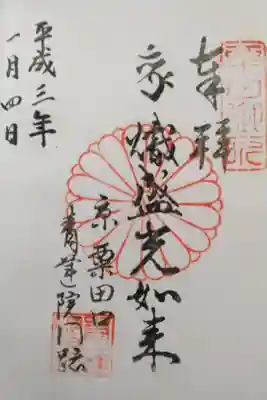 奉拝
熾盛光如来
京粟田口
青蓮院門跡
平成三年
一月四日